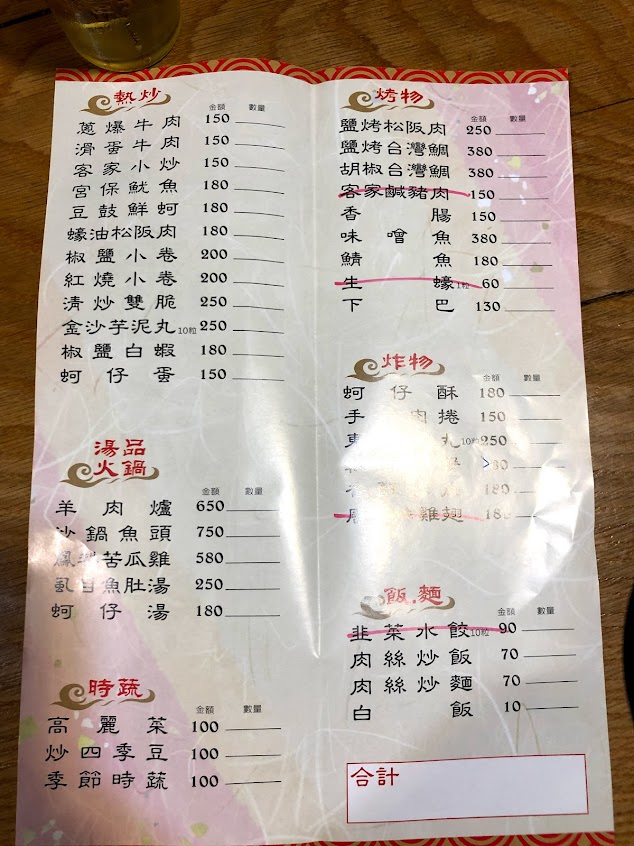 熱炒 金額 數量
蔥爆牛肉 150
滑蛋牛肉 150
客家小炒 150
宮保魷魚 180
豆鼓鮮蚵 180
蠔油松阪肉 180
椒鹽小卷 200
紅燒小卷 200
清炒雙脆 250
金沙芋泥丸 10粒 250
椒鹽白蝦 180
蚵仔蛋 150
湯品
火鍋 金額 數量
羊肉爐 650
沙鍋魚頭 750
鳳梨苦瓜雞 580
虱目魚肚湯 250
蚵仔湯 180
時蔬 金額 數量
高麗菜 100
炒四季豆 100
季節時蔬 100
烤物 金額 數量
鹽烤松阪肉 250
鹽烤台灣鯛 380
胡椒台灣鯛 380
客家鹹豬肉 150
香腸 150
味噌魚 380
鯖魚 180
生蠔 1粒 60
下巴 130
炸物 金額 數量
蚵仔酥 180
手肉捲 150
丸 10粒 250
180
雞翅 180
飯.麵 金額 數量
韭菜水餃 10粒 90
肉絲炒飯 70
肉絲炒麵 70
白飯 10
合計